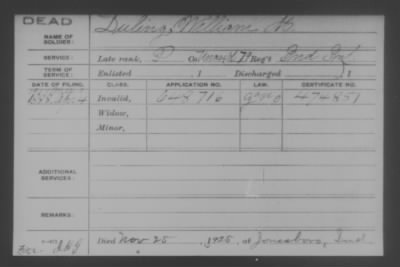 DEAD
NAME OF SOLDIER: Duling, William H.
SERVICE: Late rank, P Co. Reg't Ind Inf
TERM OF SERVICE: Enlisted , 1 Discharged , 1
DATE OF FILING. CLASS. APPLICATION NO. LAW. CERTIFICATE NO.
Invalid, 648716 474851
Widow,
Minor,
ADDITIONAL SERVICES:
REMARKS:
Died Nov 25, 1925, at Jonesboro, Ind